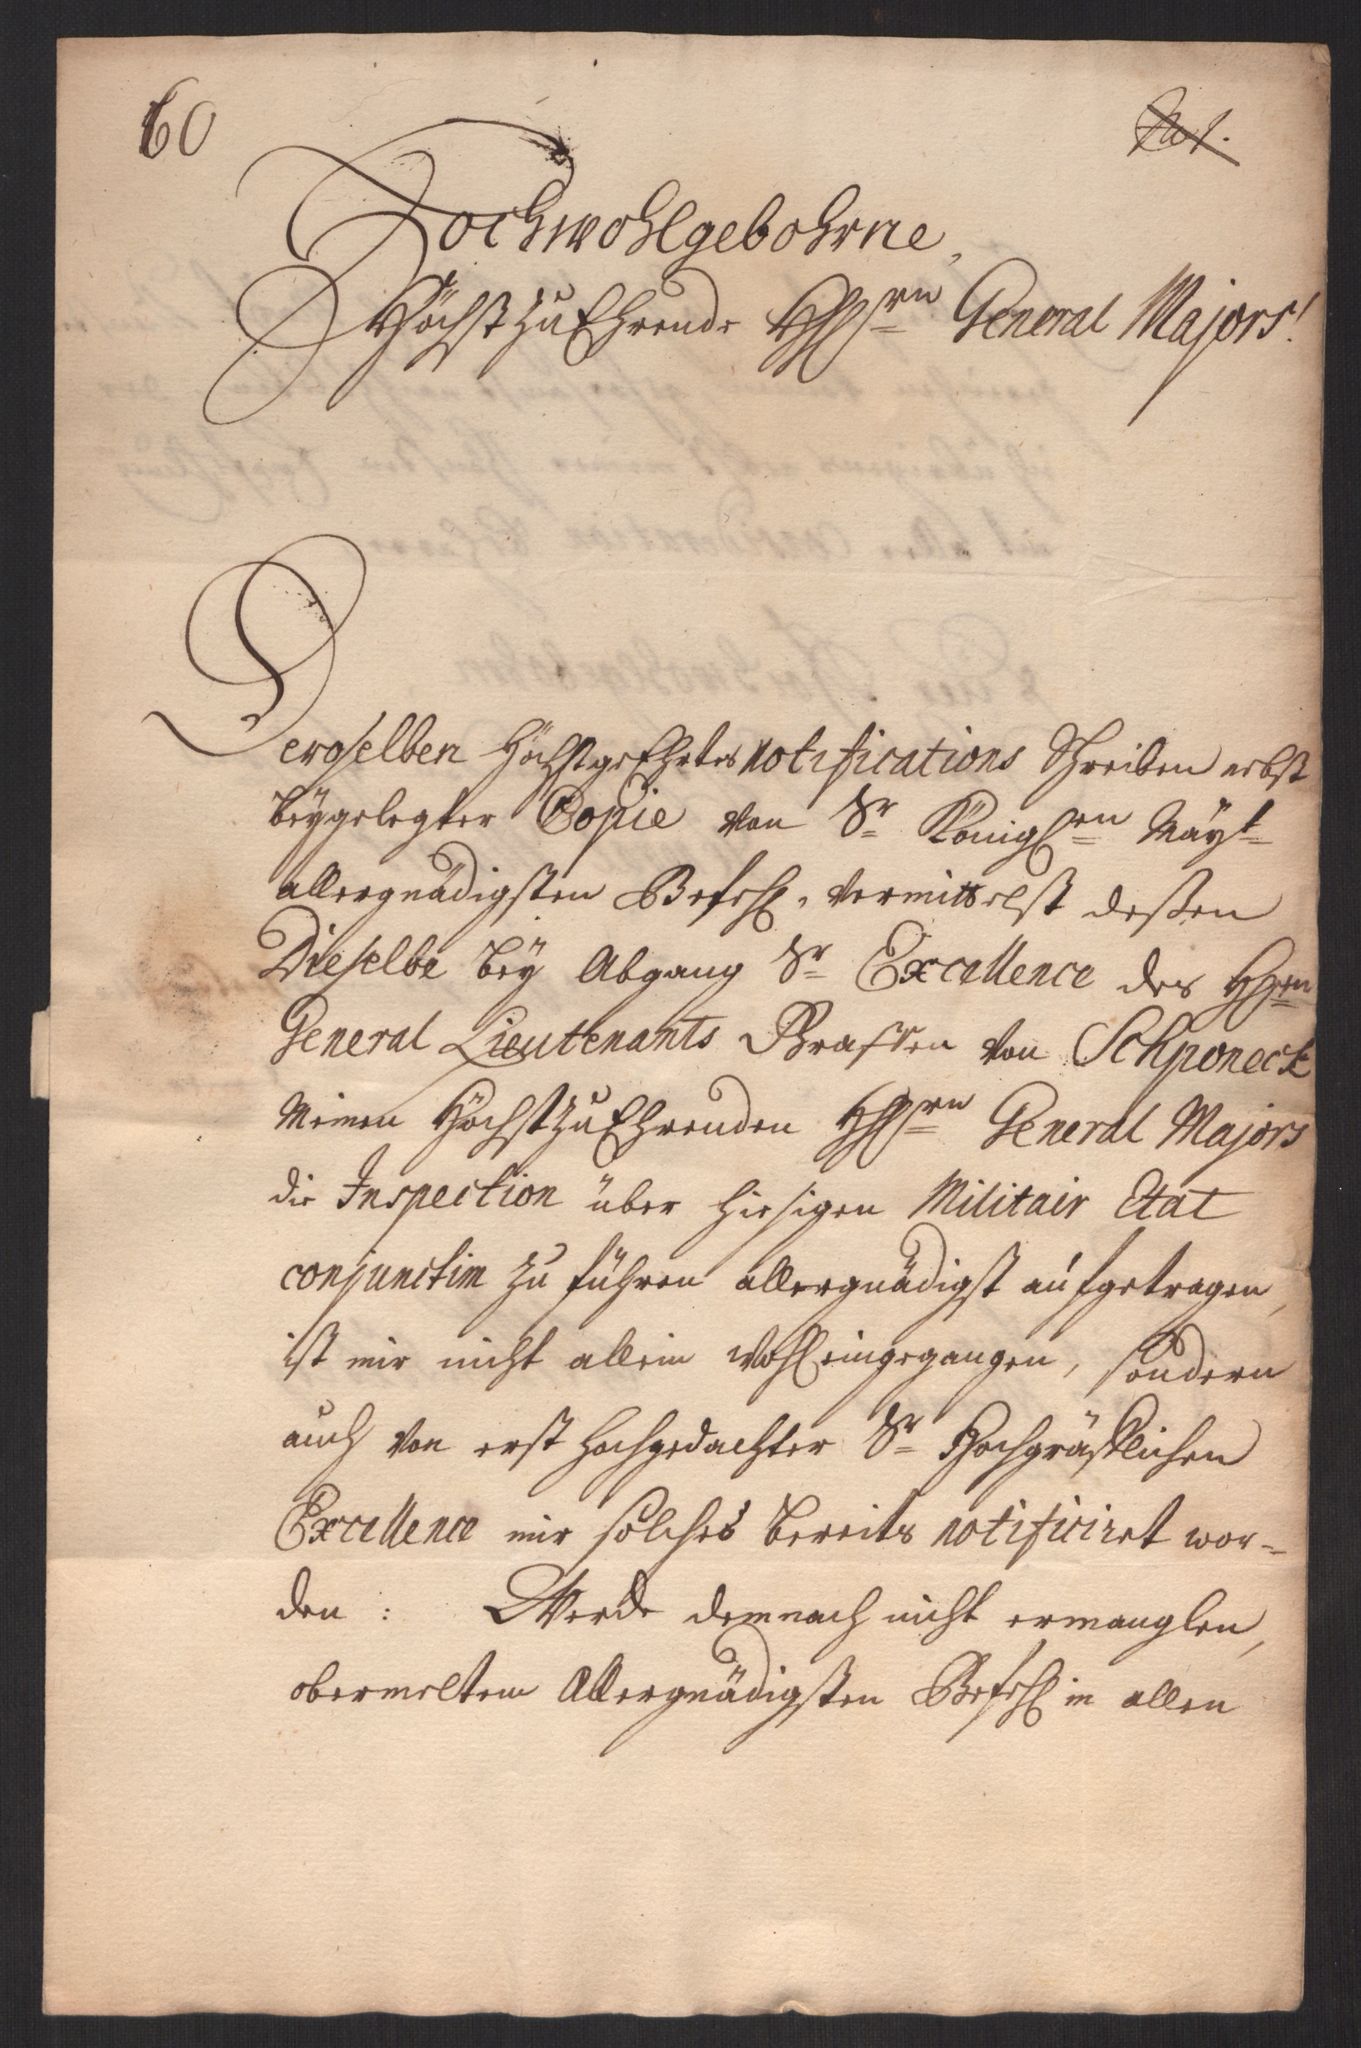 60
No 1.
Hochwohlgebohrne,
HöchstzuEhrende HHrn General Majors!
Deroselben HöchstgeEhrtes notifications Schreiben nebst
beygelegter Copie von Sr Königlen Mayt
allergnädigsten Befehl, vermittelst deßen
Dieselbe bey Abgang Sr Excellence des HHrn
General Lieutenants Graffen von Schponeck
Meinen HöchstzuEhrenden HHrn General Majors
die Inspection über hiesigen Militair Etat
conjunctim zu führen allergnädigst aufgetragen,
ist mir nicht allein wohl eingegangen, sondern
auch von erst hochgedachter Sr Hochgräfflichen
Excellence mir solches bereits notificiret wor-
den: Werde demnach nicht ermanglen,
obermeltem Allergnädigsten Befehl in allen